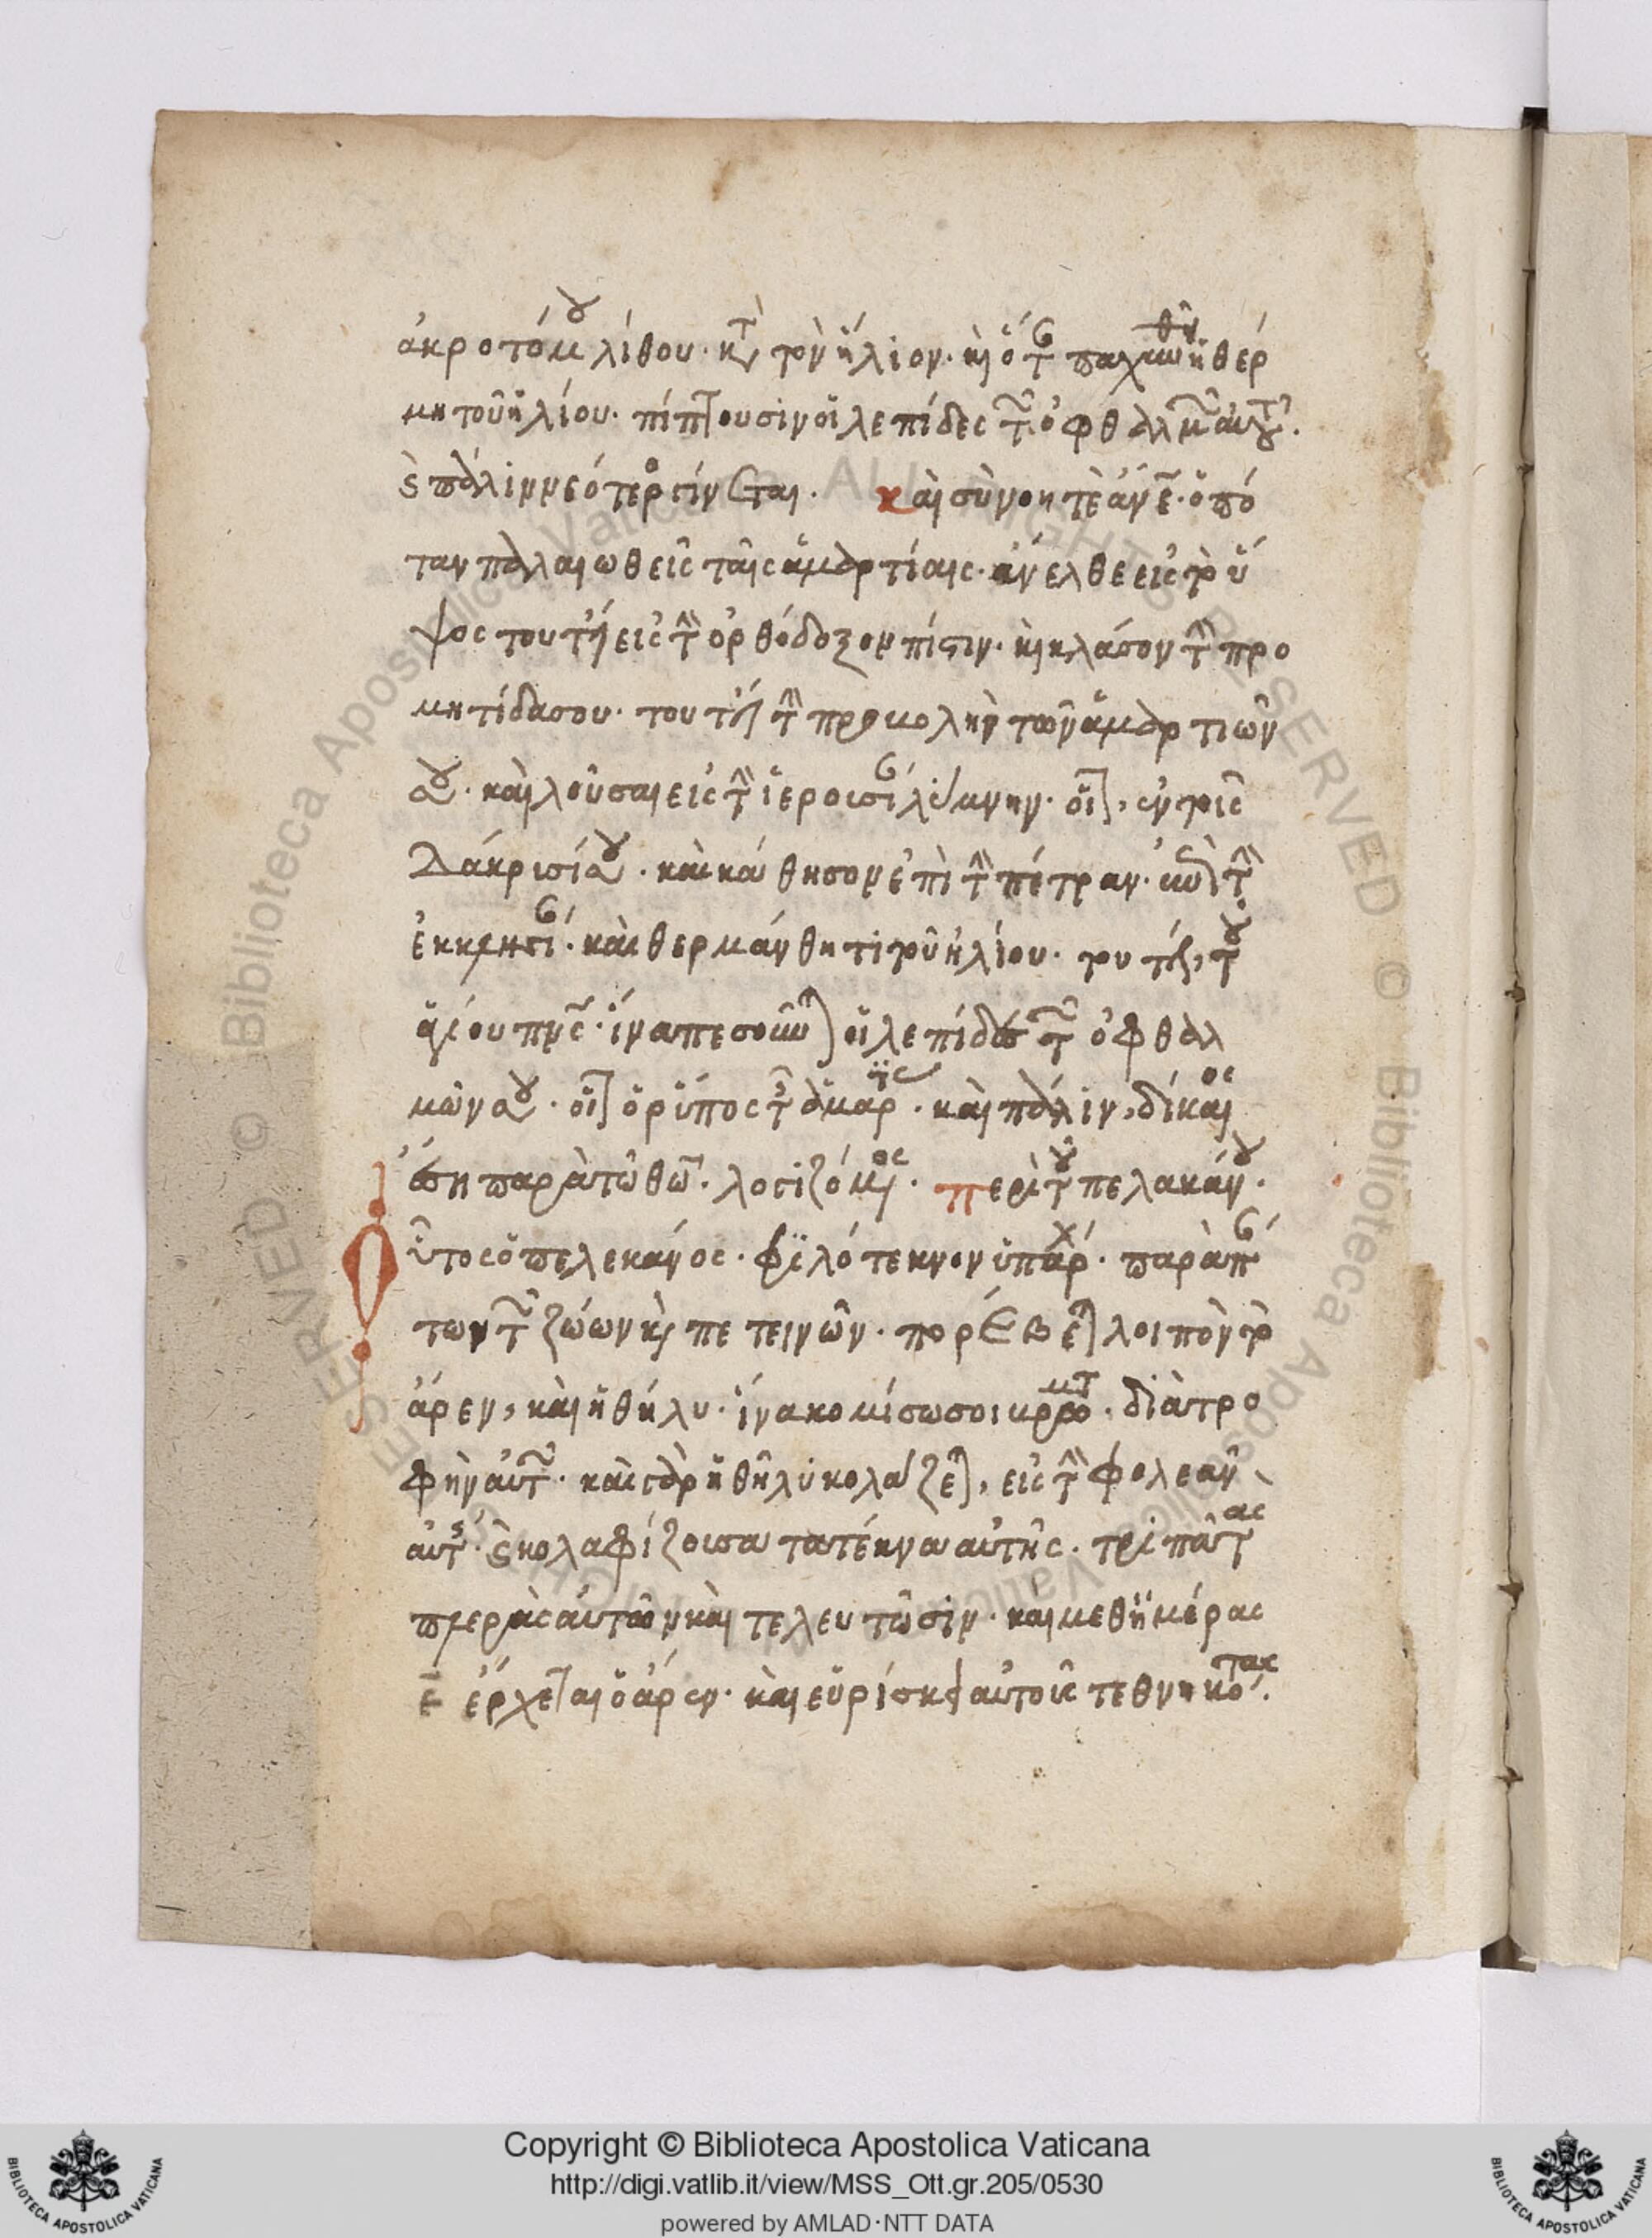 ἀκροτόμου λίθου· κατὰ τὸν ἥλιον· καὶ ὅταν παχυνθῆ ἡ θέρ
μη τοῦ ἡλίου· πίπτουσιν οἱ λεπίδες τῶν ὀφθαλμῶν αὐτοῦ·
καὶ πάλιν νεότερος γίνεται· καὶ σὺ νοητὲ ἄνε· ὁπό
ταν παλαιωθεὶς ταῖς ἁμαρτίαις· ἄνελθε εἰς τὸ ὕ
ψος τουτέστιν εἰς τὴν ὀρθόδοξον πίστιν· καὶ κλάσον τὴν προ
μητίδα σου· τουτέστι τὴν προσκόλην τῶν ἁμαρτιῶν
σου· καὶ λοῦσαι εἰς τὴν λίμνην· ἐν τοῖς
δάκρισί σου· καὶ κάθησον ἐπὶ τὴν πέτραν· τὴν
ἐκκλησίαν· καὶ θερμάνθητι τοῦ ἡλίου· τουτέστι, τοῦ
ἁγίου πνς· ἵνα πεσοῦν οἱ λεπίδες τῶν ὀφθαλ
μῶν σου· ὁ ρύπος τῆς ἁμαρτίας· καὶ πάλιν, δίκαιος
ἔση παρὰ τῶ θω· λογιζόμενος· περὶ τοῦ πελακάνου·
Οὗτος ὁ πελεκάνος· φιλότεκνον ὑπάρχει· παρὰ πάν
των τῶν ζώων καὶ πετεινῶν· πορεύεται λοιπὸν τὸ
ἄρεν, καὶ ἡ θήλυ· ἵνα κομίσωσοι· διὰ τρο
φὴν αὐτῶν· καὶ γὰρ ἡ θῆλυ κολάζεται, εἰς τὴν φολεὰν
αὐτῆς· καὶ κολαφίζουσα τα τέκνα αὐτῆς· τριπᾶ τας
πλερὰς αὐτῶν καὶ τελευτῶσιν· καὶ μεθ ἡμέρας
γ ἔρχεται ὁ ἄρεν· καὶ εὑρίσκει αὐτοὺς τεθνηκότας·
Copyright © Biblioteca Apostolica Vaticana
http://digi.vatlib.it/view/MSS_Ott.gr.205/0530
powered by AMLAD·NTT DATA